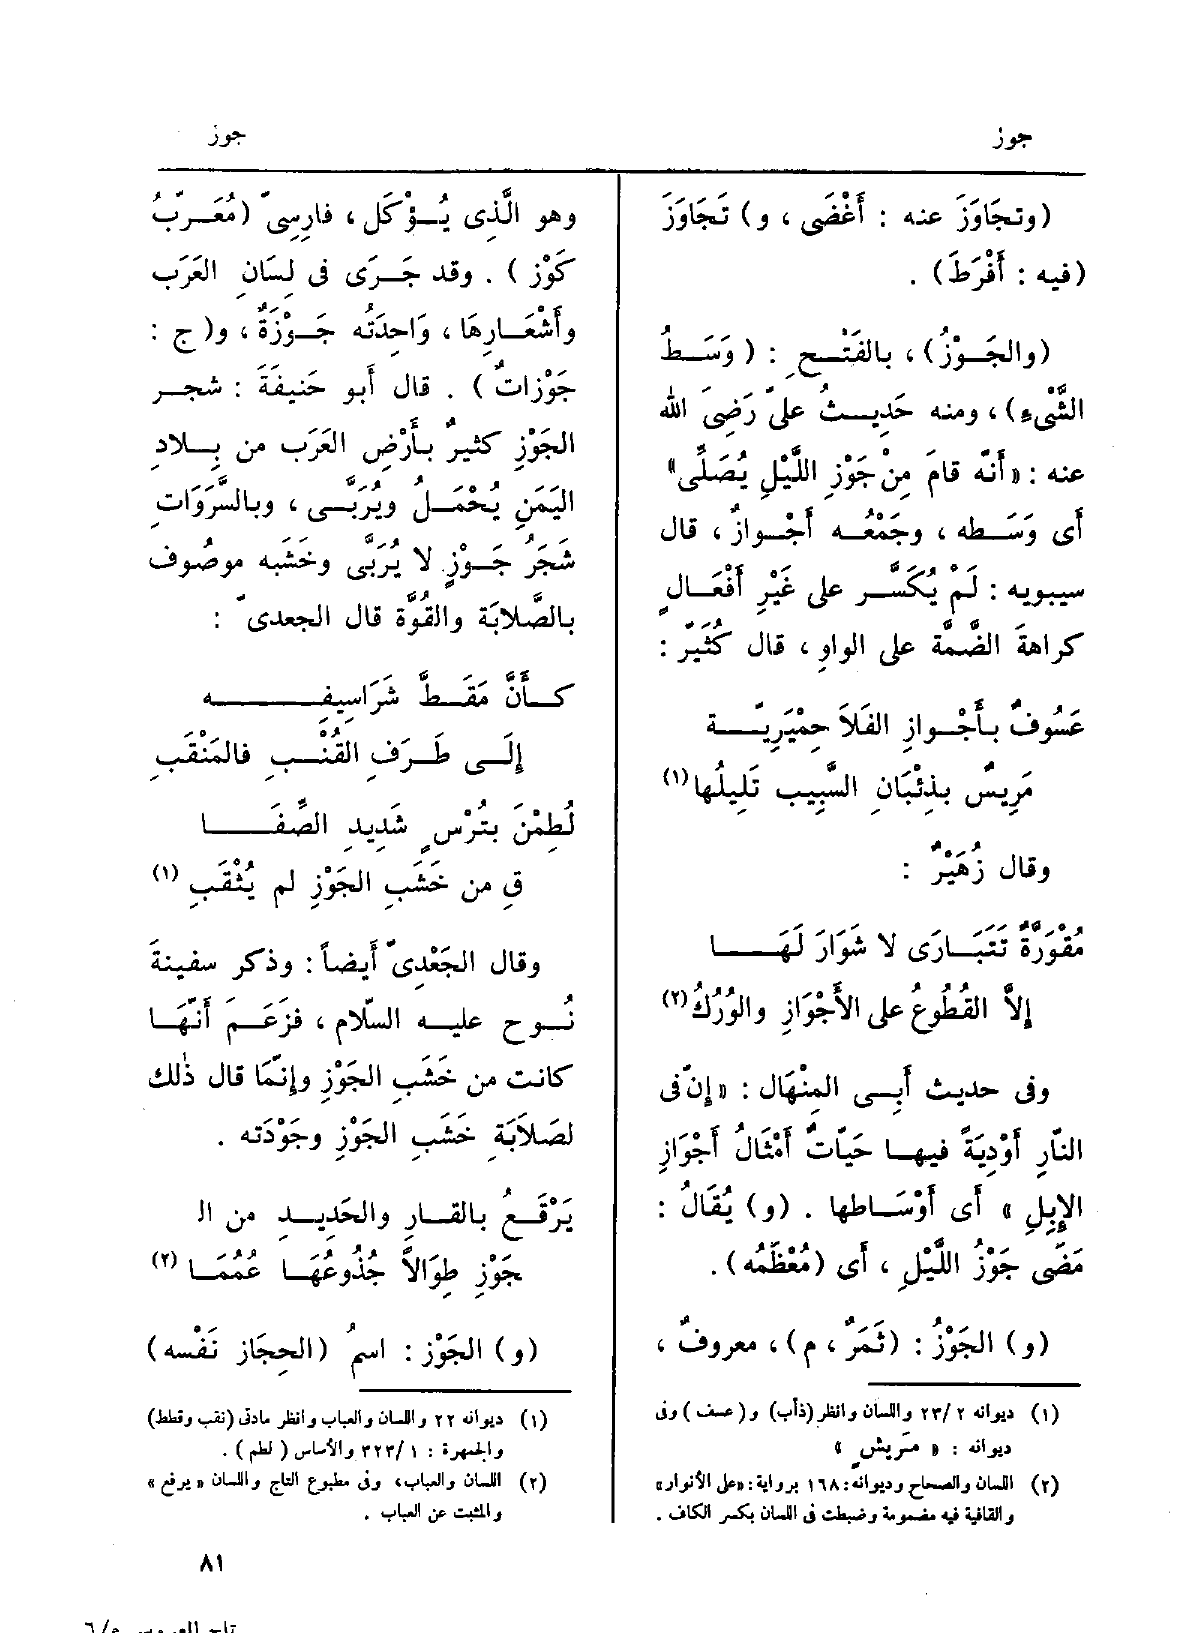 جوز
جوز
(وتجَاوَزَ عنه : أَغْضَى ، و) تَجَاوَزَ
(فيه : أَفْرَطَ) .
(والجَوْزُ)، بالفَتْحِ : (وَسَطُ
الشَّىْءِ)، ومنه حَدِيثُ علىّ رَضِىَ الله
عنه : «أَنَّه قامَ مِنْ جَوْزِ اللَّيْلِ يُصَلِّى»
أَى وَسَطه ، وجَمْعُه أَجْوازٌ ، قال
سيبويه : لَمْ يُكَسَّر على غَيْرِ أَفْعَالٍ
كراهةَ الضَّمَّة على الواوِ ، قال كُثَيِّرٌ :
عَسُوفٌ بأَجْوازِ الفَلاَ حِمْيَرِيَّة
مَرِيسٌ بذِئْبَانِ السَّبِيب تَلِيلُها (١)
وقال زُهَيْرٌ :
مُقْوَرَّةٌ تَتَبَارَى لا شَوَارَ لَهَا
إِلاَّ القُطُوعُ على الأَجْوَازِ والوُرُكُ (٢)
وفى حديث أَبِى المِنْهَال : «إِنّ فى
النّارِ أَوْدِيَةً فيها حَيّاتٌ أَمْثَالُ أَجْوَازِ
الإِبِلِ » أَى أَوْسَاطها . (و) يُقَالُ :
مَضَى جَوْزُ اللَّيْلِ ، أَى (مُعْظَمُه) .
(و) الجَوْزُ : (ثَمَرٌ ، م) ، معروفٌ ،
(١) ديوانه ٢ /٢٣ واللسان وانظر (ذأب) و(عسف) وفى
ديوانه : « مَريشٍ »
(٢) اللسان والصحاح وديوانه: ١٦٨ برواية: «على الأنوار»
والقافية فيه مضمومة وضبطت فى اللسان بكسر الكاف .
وهو الَّذِى يُؤْكَل ، فارِسِىّ (مُعَرَّبُ
كَوْز ) . وقد جَرَى فى لِسَانِ العَرَب
وأَشْعَارِهَا ، وَاحِدَتُه جَوْزَةٌ ، و( ج :
جَوْزاتٌ ) . قال أَبو حَنيفَةَ : شجر
الجَوْزِ كثيرٌ بأَرْضِ العَرَب من بِلادِ
اليَمَنِ يُحْمَلُ ويُرَبَّى ، وبالسَّرَوَاتِ
شَجَرُ جَوْزٍ لا يُرَبَّى وخَشَبه موصُوف
بالصَّلابَة والقُوَّة قال الجعدىّ :
كأَنَّ مَقَطَّ شَرَاسِيفِه
إِلَى طَرَفِ القُنْبِ فالمَنْقَبِ
لُطِمْنَ بتُرْسٍ شَدِيدِ الصِّفَا
قِ من خَشَبِ الجَوْزِ لم يُثْقَبِ (١)
وقال الجَعْدِىّ أَيضاً : وذكر سفينةَ
نُوح عليه السّلام ، فزَعَمَ أَنَّهَا
كانت من خَشَبِ الجَوْزِ وإِنَّمَا قال ذٰلك
لصَلاَبَةِ خَشَبِ الجَوْزِ وجَوْدَته .
يَرْقَعُ بالقارِ والحَدِيدِ من الـ
جَوْزِ طِوَالاً جُذُوعُهَا عُمُمَا (٢)
(و) الجَوْز : اسمُ (الحِجَاز نَفْسه)
(١) ديوانه ٢٢ واللسان والعباب وانظر مادتى (نقب وقطط)
والجمهرة : ١ /٣٢٣ والأساس ( لطم ) .
(٢) اللسان والعباب، وفى مطبوع التاج واللسان « يرفع »
والمثبت عن العباب .
٨١